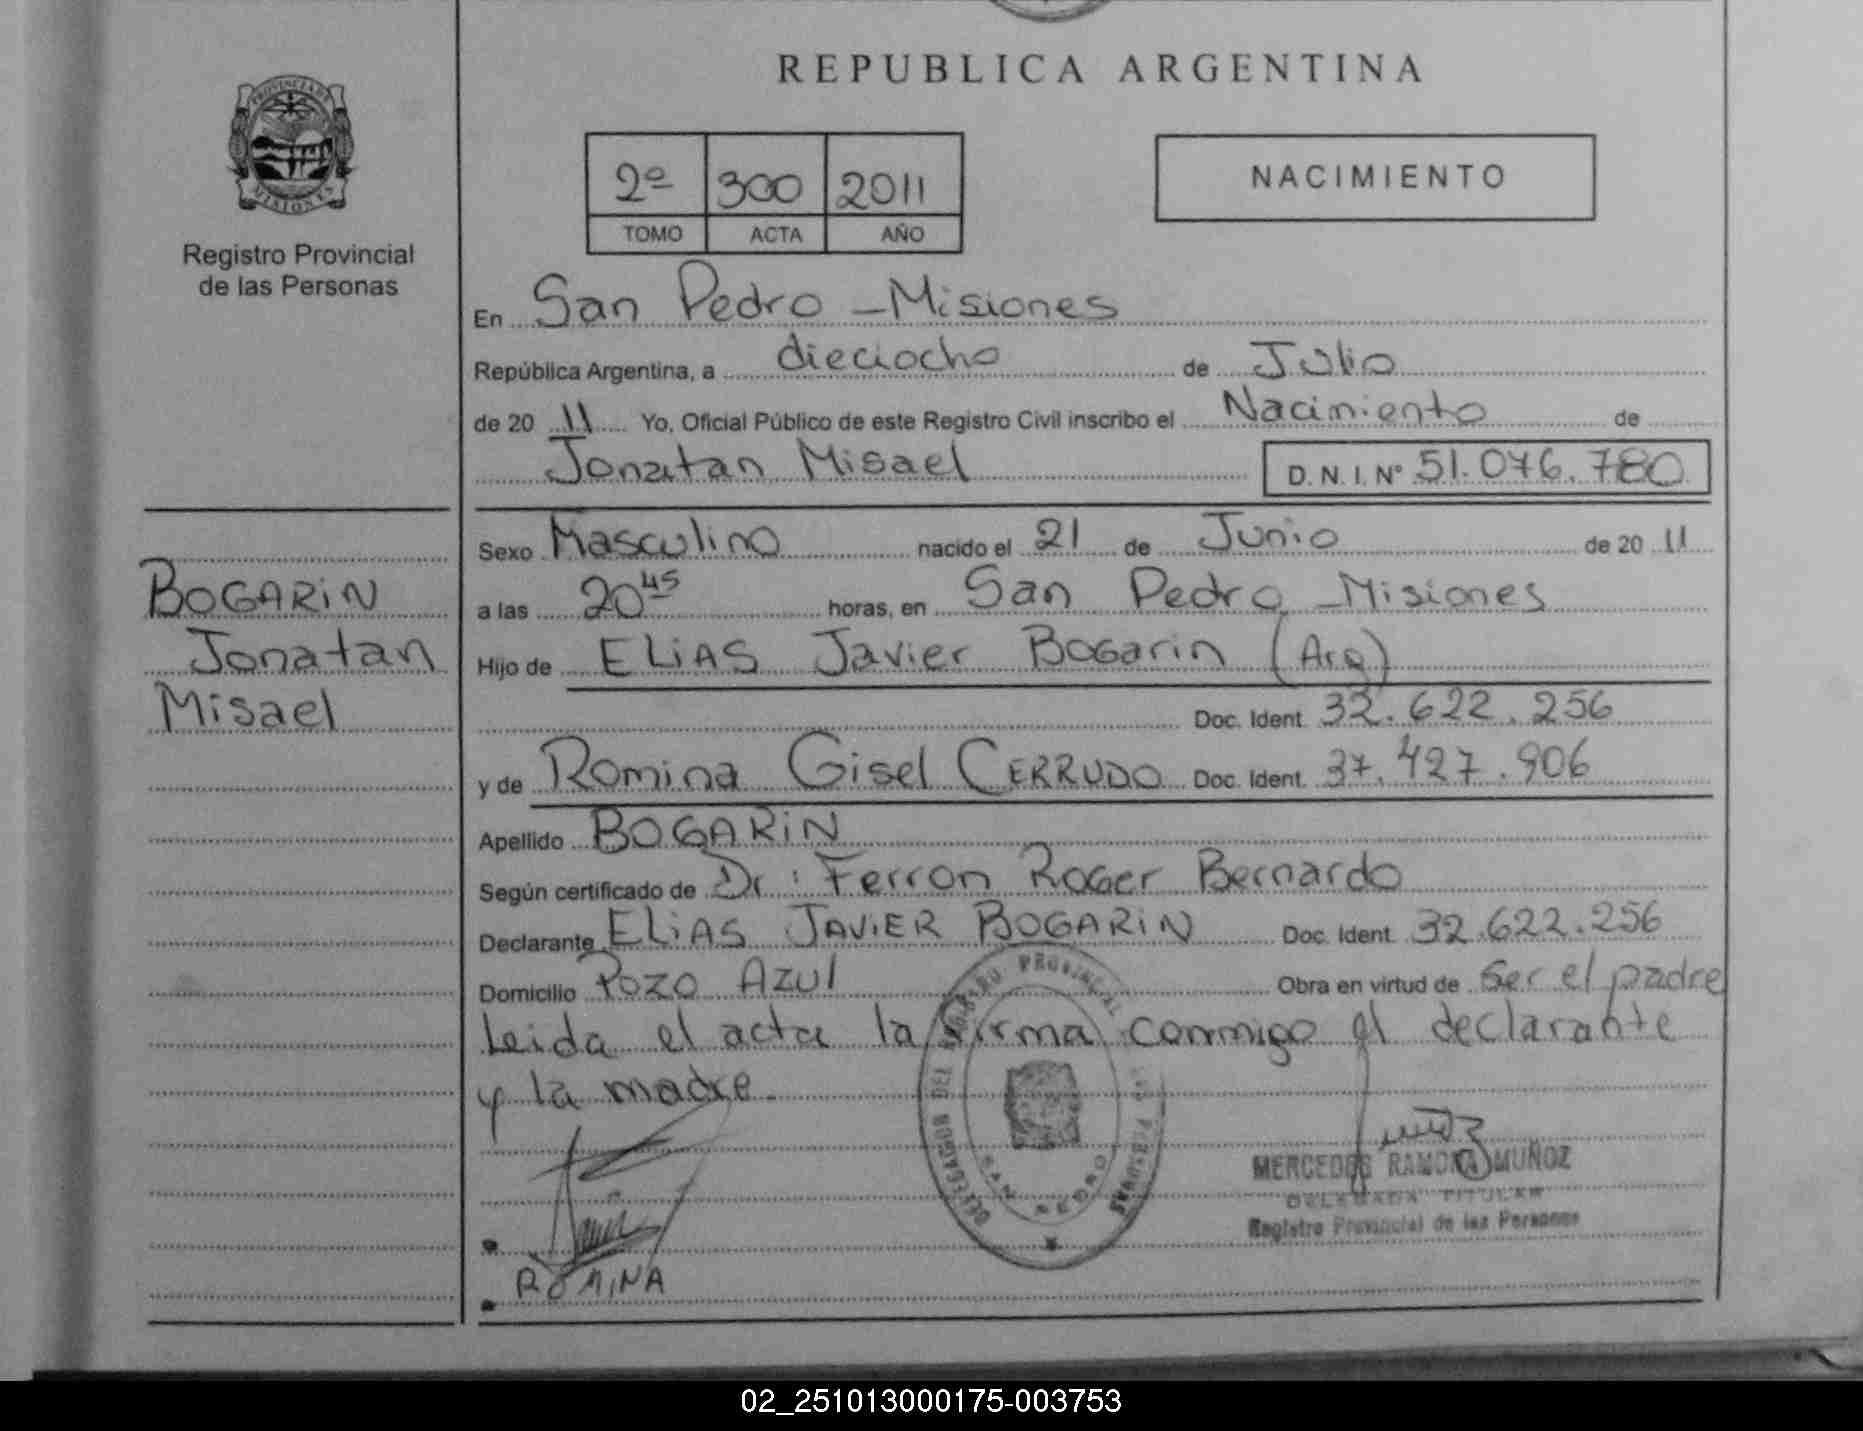 PROVINCIA DE
MISIONES
Registro Provincial
de las Personas
REPUBLICA ARGENTINA
2º 300 2011
TOMO ACTA AÑO
NACIMIENTO
En San Pedro - Misiones
República Argentina, a dieciocho de Julio
de 20 11 Yo, Oficial Público de este Registro Civil inscribo el Nacimiento de
Jonatan Misael D. N. I. Nº 51.076.780
Sexo Masculino nacido el 21 de Junio de 20 11
a las 20 45 horas, en San Pedro - Misiones
Hijo de ELiAS Javier BOGarin (Arg)
Doc. Ident. 32.622.256
y de Romina Gisel CERRUDO Doc. Ident. 37.427.906
Apellido BOGARiN
Según certificado de Dr: Ferron Roger Bernardo
Declarante ELiAS JAViER BOGARiN Doc. Ident. 32.622.256
Domicilio POZO AZUl Obra en virtud de Ser el padre
Leida el acta la firma conmigo el declarante
y la madre.
BOGARiN
Jonatan
Misael
ROMINA
DELEGACION DEL REGISTRO PROVINCIAL DE LAS PERSONAS
SAN PEDRO
MERCEDES RAMONA MUÑOZ
DELEGADA TITULAR
Registro Provincial de las Personas
02_251013000175-003753